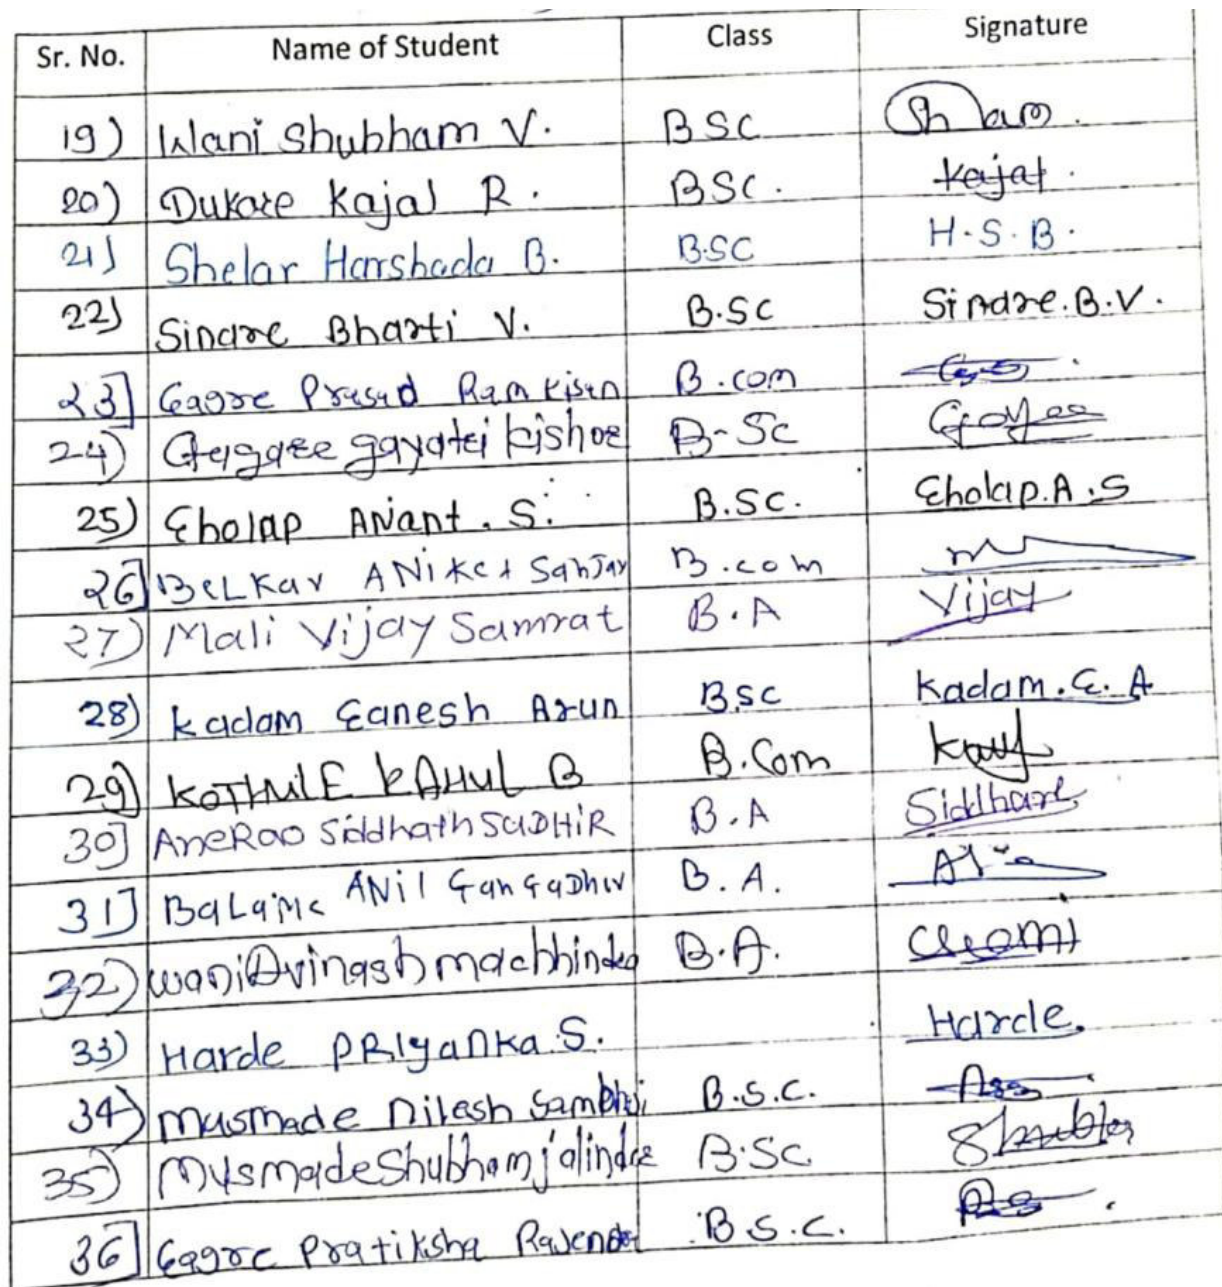 Sr. No. Name of Student Class Signature
19) Wani Shubham V. BSC Sham.
20) Dukare Kajal R. BSC. Kajal.
21) Shelar Harshada B. B.SC H.S.B.
22) Sinare Bharti V. B.SC Sinare.B.V.
23] Gagre Prasad Ramkisan B.com
24) Gagare gayatri kishor B-Sc Gaya
25) Gholap Anant. S. B.SC. Gholap.A.S
26] BeLKar ANiket Sanjay B.com
27) Mali Vijay Samrat B.A Vijay
28) Kadam Ganesh Arun B.SC Kadam.G.A
29) KOTHULE RAHUL B B.Com
30] AneRao Siddhath SUDHIR B.A Siddhart
31] BaLaMe ANil GanGaDhar B.A.
32) wani Avinash machhindra B.A.
33) Harde PRIyanka.S. Harde.
34) Musmade Nilesh Sambhaji B.S.C.
35) Musmade Shubham jalindar B.SC Shubham
36] Gagre Pratiksha Rajendra B.S.C.